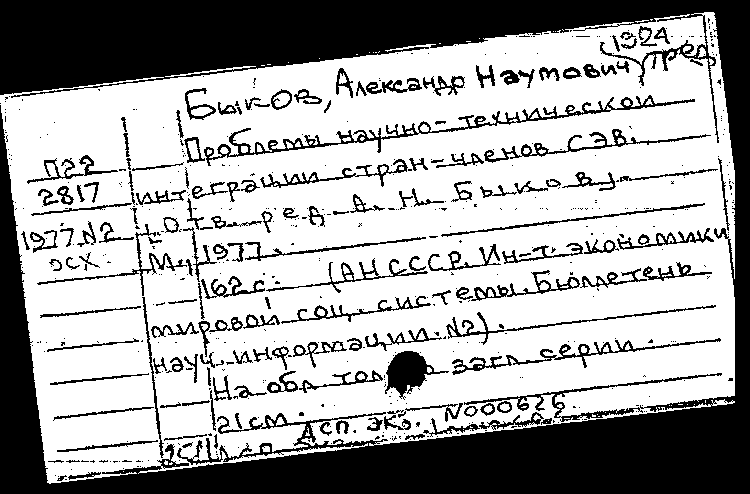 1924
Быков, Александр Наумович, ред
Проблемы научно-технической
П22
2817
интеграции стран-членов СЭВ.
[Отв. ред. А. Н. Быков].
1977 N2
ОСХ
М., 1977.
162 с. (АН СССР. Ин-т. экономики
мировой соц. системы. Бюллетень
науч. информации. N2).
На обл. загл. серии.
21 см.
Асп. эко. N000626